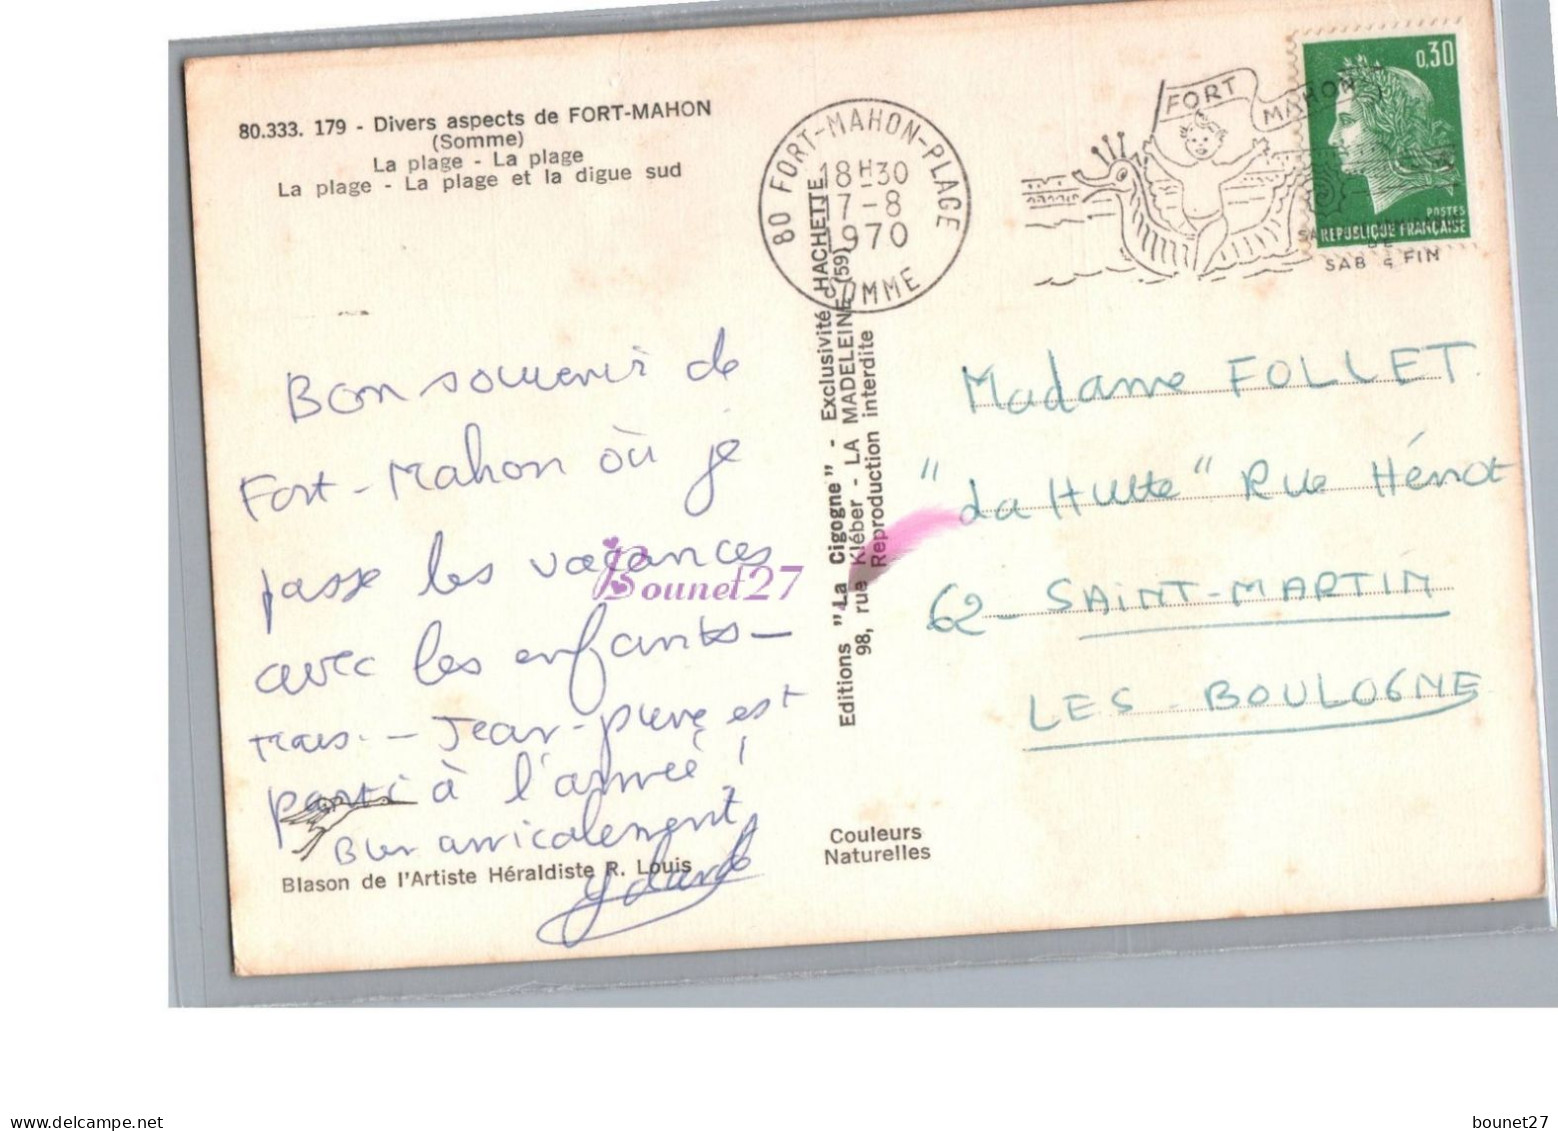 80.333. 179 - Divers aspects de FORT-MAHON
(Somme)
La plage - La plage
La plage - La plage et la digue sud
Bon souvenir de
Fort-Mahon où je
passe les vacances
avec les enfants -
mais - Jean-pierre est
parti à l'armée !
Bien amicalement,
Blason de l'Artiste Héraldiste R. Louis
Bounet27
Editions "La Cigogne" - Exclusivité HACHETTE
98, rue Kléber - LA MADELEINE (59)
Reproduction interdite
Couleurs
Naturelles
80 FORT-MAHON-PLAGE
18H30
7-8
1970
SOMME
FORT MAHON
SABLE FIN
0,30
POSTES
REPUBLIQUE FRANÇAISE
Madame FOLLET.
"La Hutte" Rue Hénot
62 - SAINT-MARTIN
LES - BOULOGNE
www.delcampe.net
bounet27